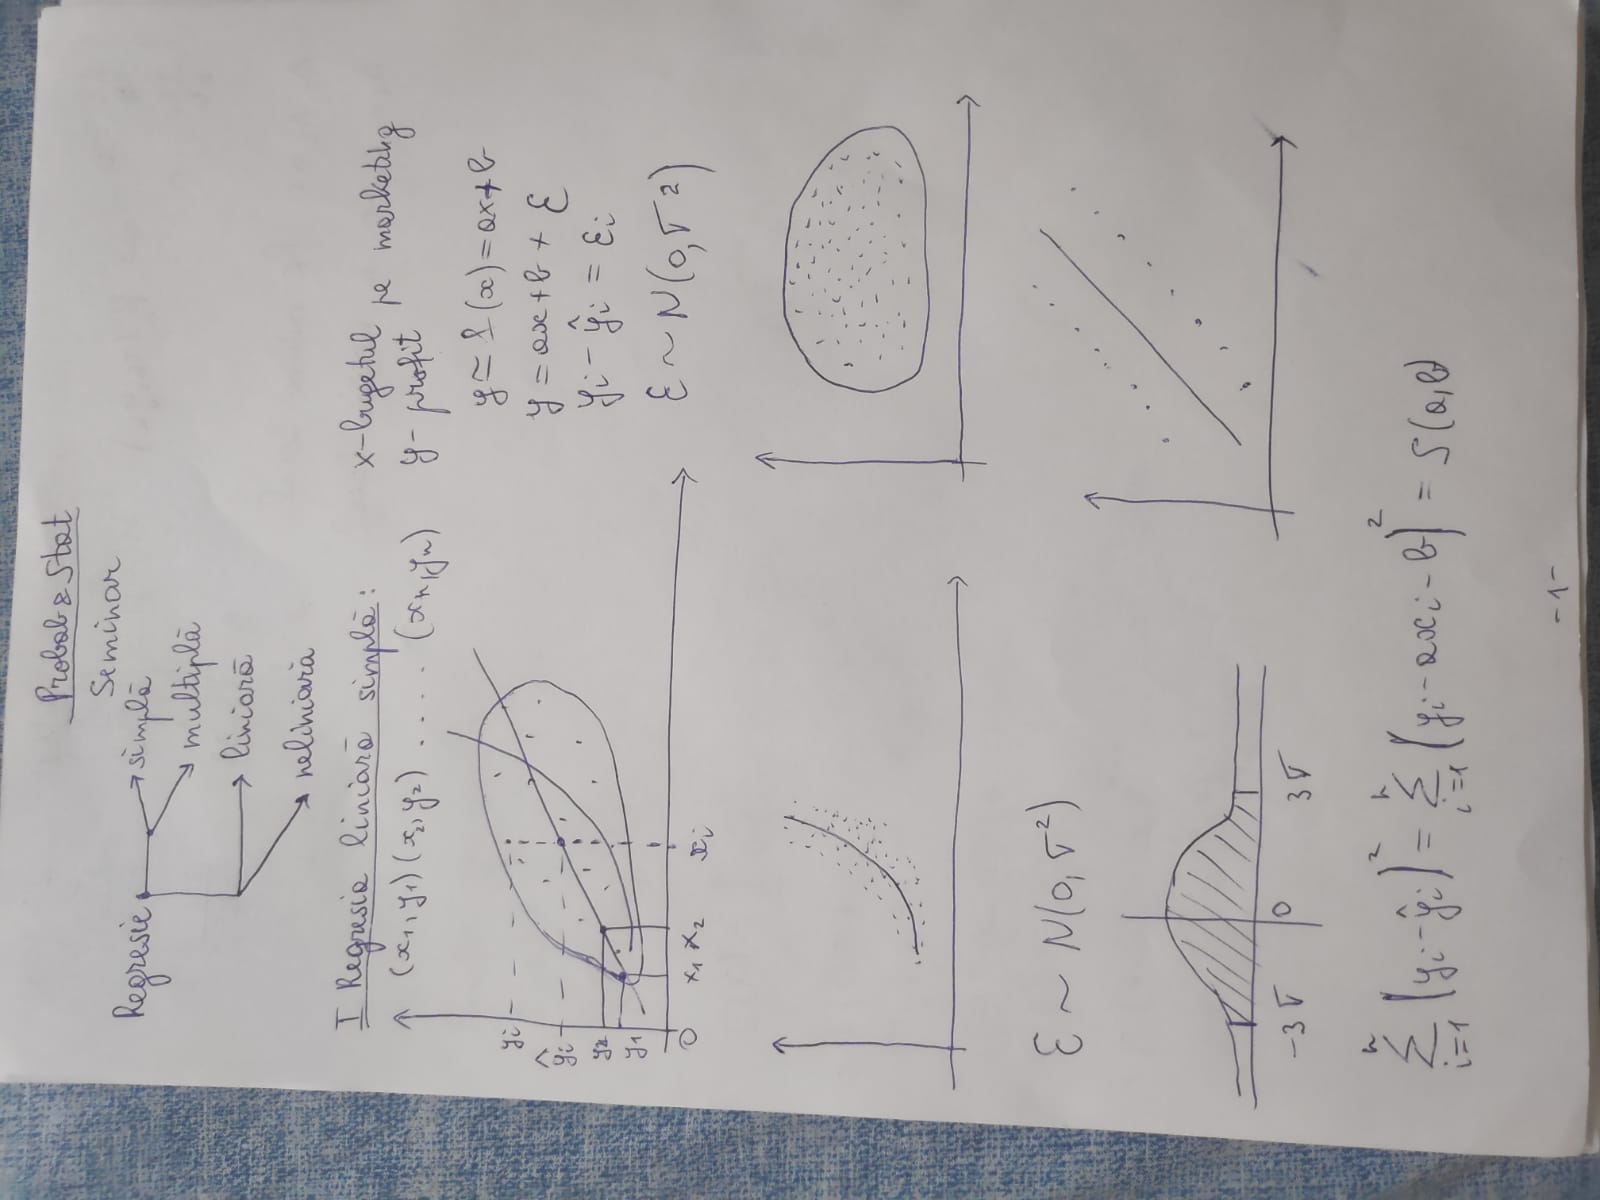 Probab & Stat
Seminar
Regresie
simplă
multiplă
liniară
neliniară
I Regresia liniară simplă:
(x₁,y₁) (x₂,y₂) .... (xₙ,yₙ)
x-bugetul pe marketing
y- profit
y ≃ f(x) = ax+b
y = ax+b + ε
yᵢ - ŷᵢ = εᵢ
ε ~ N(0,σ²)
yᵢ
ŷᵢ
y₂
y₁
O
x₁ x₂ xᵢ
ε ~ N(0,σ²)
-3σ 0 3σ
∑ᵢ₌₁ⁿ (yᵢ - ŷᵢ)² = ∑ᵢ₌₁ⁿ (yᵢ - axᵢ - b)² = S(a,b)
-1-